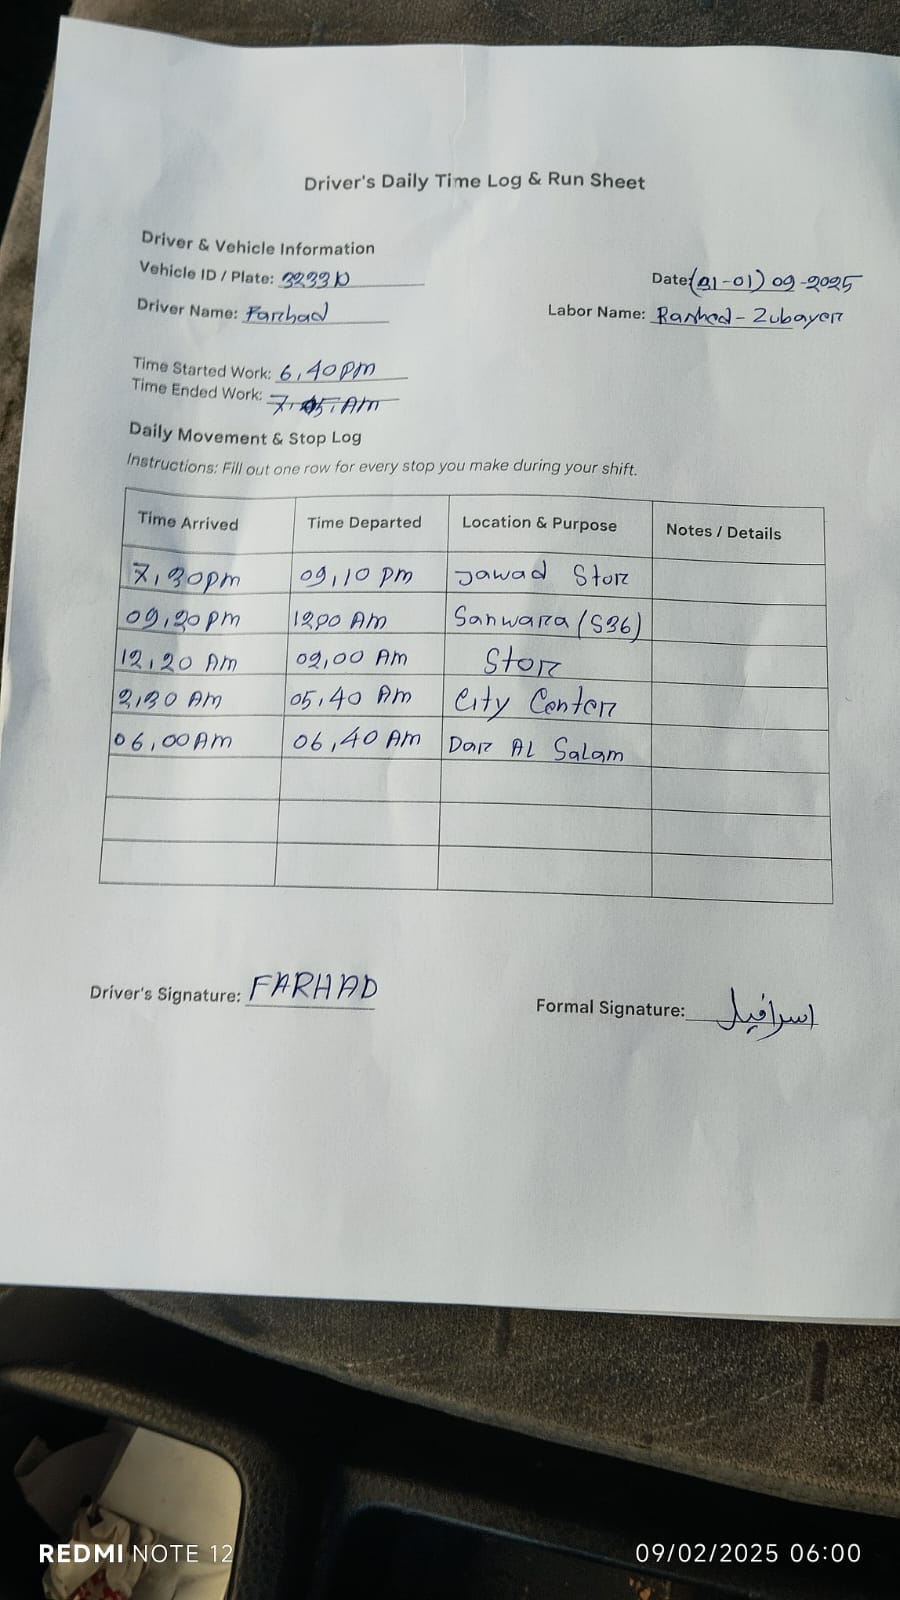 Driver's Daily Time Log & Run Sheet
Driver & Vehicle Information
Vehicle ID / Plate: 3233 D
Date: (31-01) 09-2025
Driver Name: Farhad
Labor Name: Rashed - Zubayer
Time Started Work: 6,40 PM
Time Ended Work: AM
Daily Movement & Stop Log
Instructions: Fill out one row for every stop you make during your shift.
Time Arrived Time Departed Location & Purpose Notes / Details
7,30pm 09,10 pm Jawad Stor
09,20pm 1200 AM Sanwara (S36)
12,20 AM 02,00 AM Stor
2,30 AM 05,40 AM City Center
06,00AM 06,40 AM Dar AL Salam
Driver's Signature: FARHAD
Formal Signature: اسرافيل
REDMI NOTE 12
09/02/2025 06:00